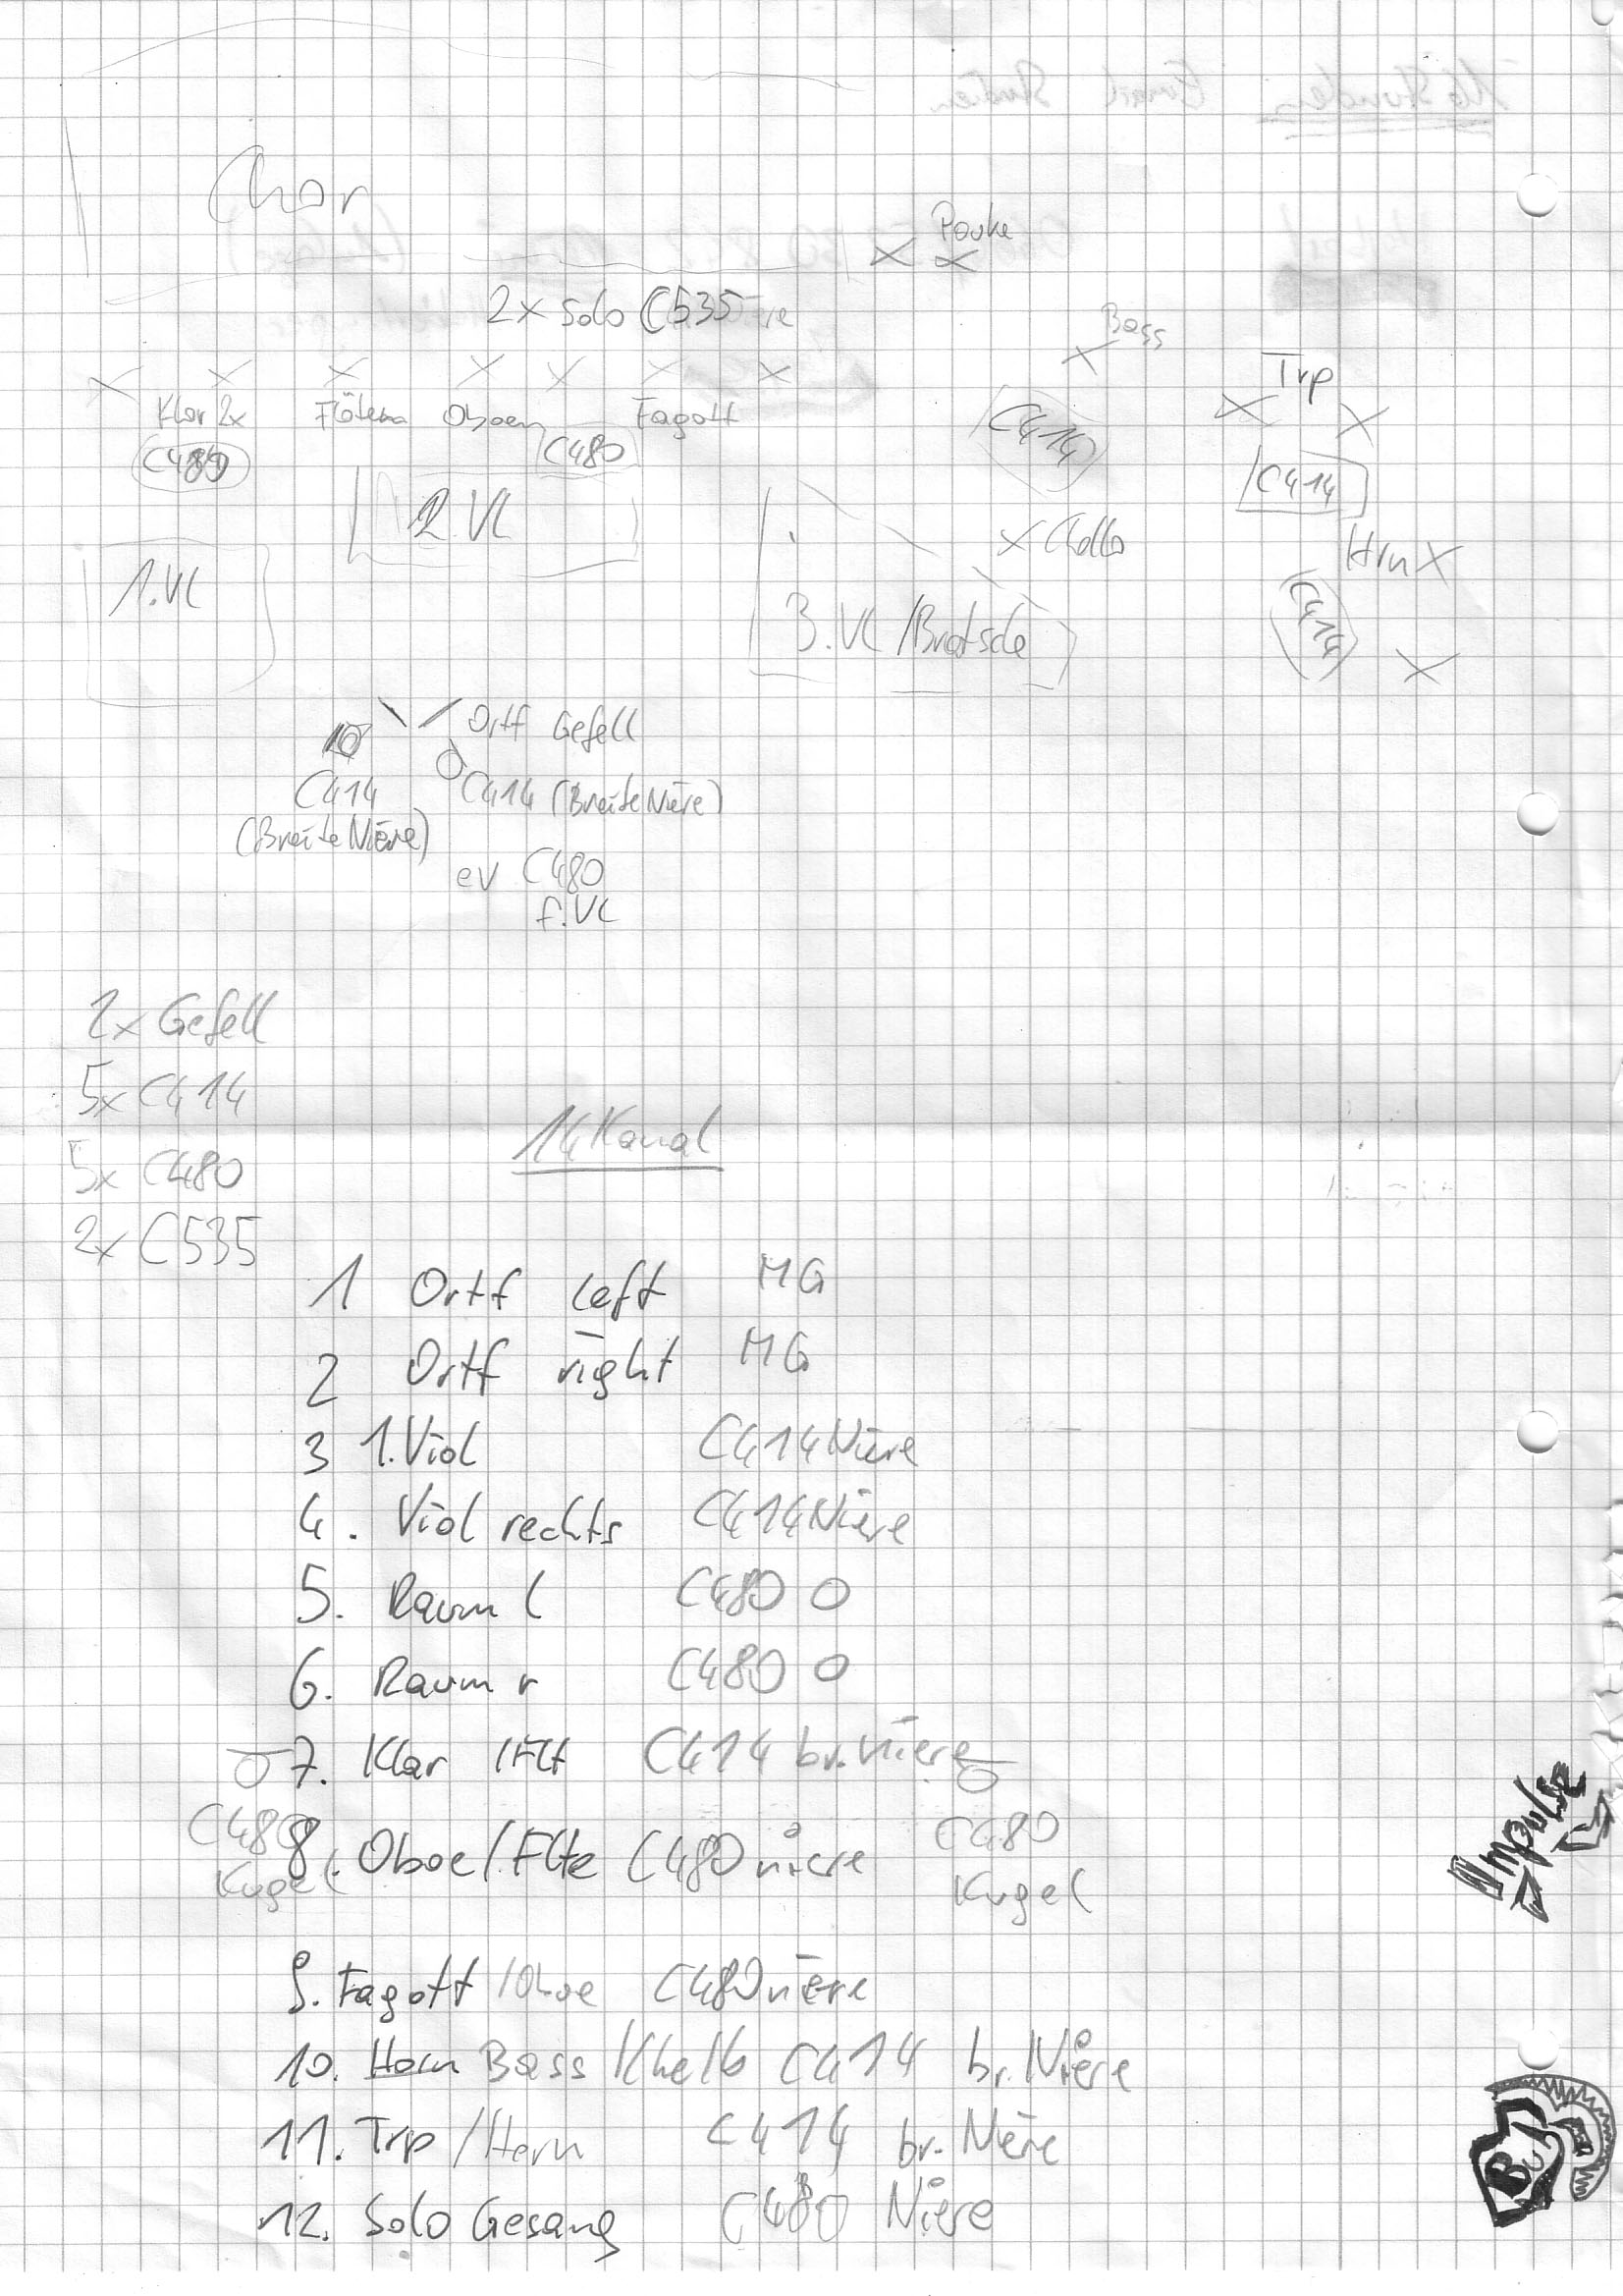 Chor
Pauke
2x Solo C535
Bass
Trp
Klar 2x Flöten Oboen Fagott
C480 C480 C414 C414
2.Vl
1.Vl
Chello
Hrn
C414
3.Vl/Bratsche
Ortf Gefell
C414 C414 (Breite Niere)
(Breite Niere)
ev C480
f.Vl
2x Gefell
5x C414
14 Kanal
5x C480
2x C535
1 Ortf left MG
2 Ortf right MG
3 1.Viol C414 Niere
4. Viol rechts C414 Niere
5. Raum l C480 O
6. Raum r C480 O
7. Klar /Flt C414 br. niere
C480 C480
8. Oboe/Flte C480 niere
Kugel Kugel
9. Fagott /Oboe C480 niere
10. Horn Bass /Khello C414 br. Niere
11. Trp /Horn C414 br. Niere
12. Solo Gesang C480 Niere
Impulse